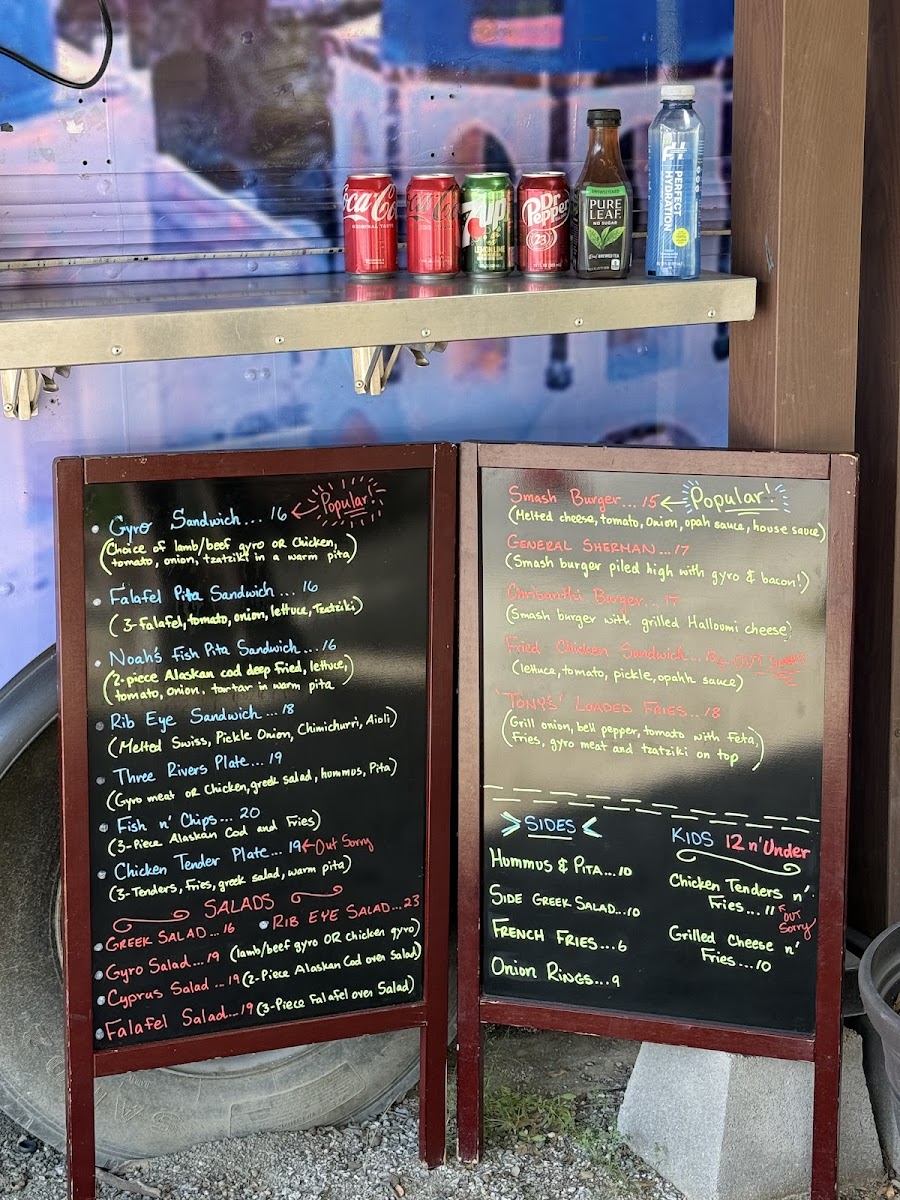 Coca-Cola
ORIGINAL TASTE
Coca-Cola
7UP
LEMON LIME
Dr Pepper
23
UNSWEETENED
PURE LEAF
NO SUGAR
PERFECT HYDRATION
Gyro Sandwich... 16 Popular!
(Choice of lamb/beef gyro OR Chicken,
tomato, onion, tzatziki in a warm pita)
Falafel Pita Sandwich... 16
(3-Falafel, tomato, onion, lettuce, Tzatziki)
Noah's Fish Pita Sandwich... 16
(2-piece Alaskan cod deep fried, lettuce,
tomato, onion, tartar in warm pita)
Rib Eye Sandwich... 18
(Melted Swiss, Pickle Onion, Chimichurri, Aioli)
Three Rivers Plate... 19
(Gyro meat OR Chicken, greek salad, hummus, Pita)
Fish n' Chips... 20
(3-Piece Alaskan Cod and Fries)
Chicken Tender Plate... 19 Out Sorry
(3-Tenders, Fries, greek salad, warm pita)
SALADS
GREEK SALAD... 16 RIB EYE SALAD... 23
Gyro Salad... 19 (lamb/beef gyro OR chicken gyro)
Cyprus Salad... 19 (2-Piece Alaskan Cod over Salad)
Falafel Salad... 19 (3-Piece Falafel over Salad)
Smash Burger... 15 Popular!
(Melted cheese, tomato, Onion, opah sauce, house sauce)
GENERAL SHERMAN... 17
(Smash burger piled high with gyro & bacon!)
Chrisanthi Burger... 17
(Smash burger with grilled Halloumi cheese)
Fried Chicken Sandwich... 18 OUT
(lettuce, tomato, pickle, opahh sauce)
'TONY'S' LOADED FRIES... 18
(Grill onion, bell pepper, tomato with Feta,
Fries, gyro meat and tzatziki on top)
SIDES
HUMMUS & PITA... 10
SIDE GREEK SALAD... 10
FRENCH FRIES... 6
Onion RINGS... 9
KIDS 12 n' Under
Chicken Tenders n'
Fries... 11 OUT Sorry
Grilled Cheese n'
Fries... 10